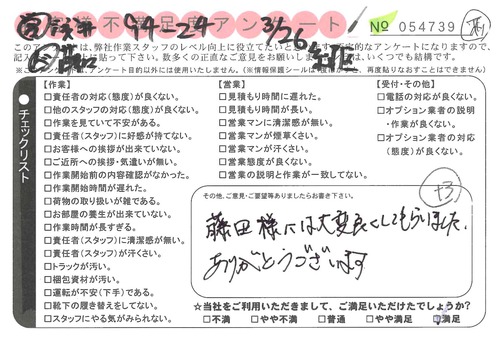 お客様不満足度アンケート
No 054739
3/26
このアンケートは、弊社作業スタッフのレベル向上に役立てたいと
的なアンケートになりますので、
貼って下さい。数多くのご正直なご意見をお願い
は、いくつでも結構です。
アンケート目的以外には使用いたしません。(※情報保護シールに
、再度貼りなおすことができません)
チェックリスト
【作業】
□責任者の対応(態度)が良くない。
□他のスタッフの対応(態度)が良くない。
□作業を見ていて不安がある。
□責任者(スタッフ)に好感が持てない。
□お客様への挨拶が出来ていない。
□ご近所への挨拶・気遣いが無い。
□作業開始前の内容確認がなかった。
□作業開始時間が遅れた。
□荷物の取り扱いが雑である。
□お部屋の養生が出来ていない。
□作業時間が長すぎる。
□責任者(スタッフ)に清潔感が無い。
□責任者(スタッフ)が汗くさい。
□トラックが汚い。
□梱包資材が汚い。
□運転が不安(下手)である。
□靴下の履き替えをしてない。
□スタッフにやる気がみられない。
【営業】
□見積もり時間に遅れた。
□見積もり時間が長い。
□営業マンに清潔感が無い。
□営業マンが煙草くさい。
□営業マンが汗くさい。
□営業態度が良くない。
□営業の説明と作業が一致してない。
【受付・その他】
□電話の対応が良くない。
□オプション業者の説明
・作業が良くない。
□オプション業者の対応
(態度)が良くない。
+3
その他、ご意見・ご要望等ありましたらお書き下さい。
藤田様には大変良くしてもらいました。
ありがとうございます
☆当社をご利用いただきまして、ご満足いただけたでしょうか?
□不満 □やや不満 □普通 □やや満足 □満足